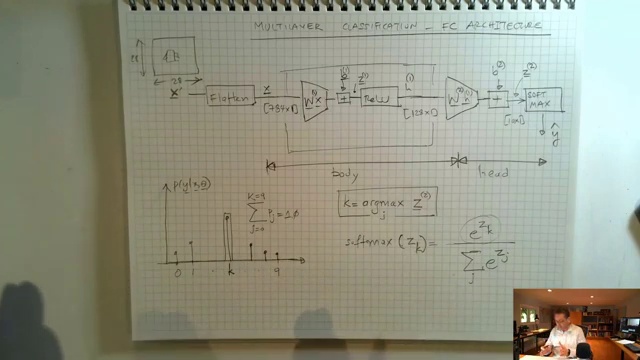 MULTILAYER CLASSIFICATION - FC ARCHITECTURE
28
28
X
Flatten
x
[784x1]
W(1) x
b(1)
+
z(1)
ReLU
h(1)
[128x1]
W(2) h(1)
b(2)
+
z(2)
[10x1]
SOFT
MAX
ŷ
body
head
p(y|x,θ)
0 1 k 9
k=9
Σ
j=0
k = argmax z(2)
j
softmax (z_k) = e^{z_k}
Σ e^{z_j}
j